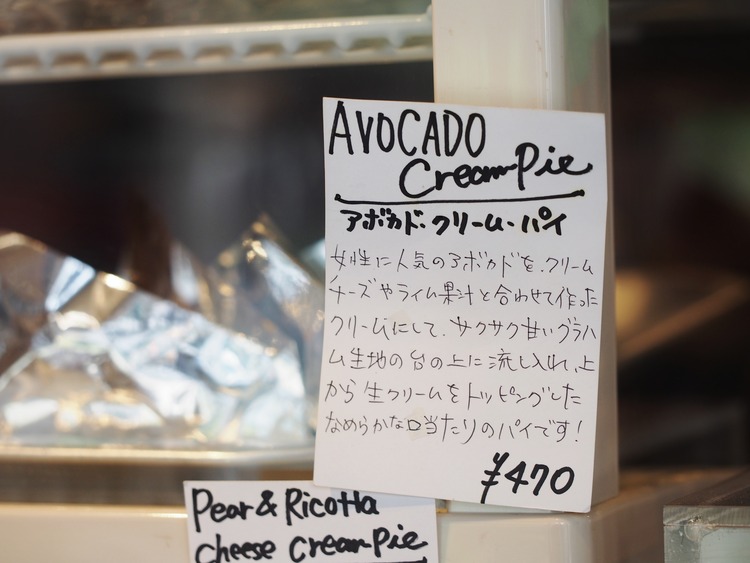 AVOCADO
Cream Pie
アボカド・クリーム・パイ
女性に人気のアボカドを、クリーム
チーズやライム果汁と合わせて作った
クリームにして、サクサク甘いグラハ
ム生地の台の上に流し入れ、上
から生クリームをトッピングした
なめらかな口当たりのパイです!
¥470
Pear & Ricotta
cheese cream pie